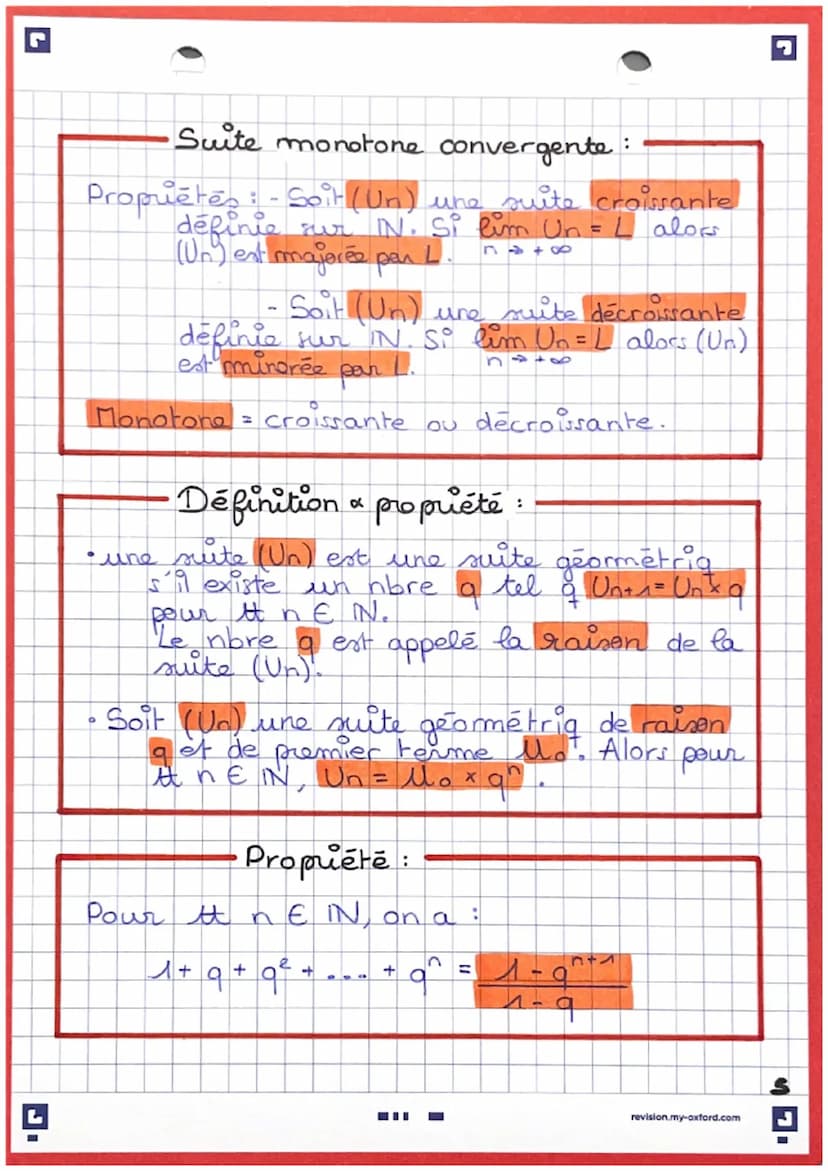 Suite monotone convergente :
Propriétés : - Soit (Un) une suite croissante
définie sur ℕ. Si lim Un = L alors
n → +∞
(Un) est majorée par L.
- Soit (Un) une suite décroissante
définie sur ℕ. Si lim Un = L alors (Un)
n → +∞
est minorée par L.
Monotone = croissante ou décroissante.
Définition & propriété :
• une suite (Un) est une suite géométriq
s'il existe un nbre q tel q Un+1 = Un × q
pour tt n ∈ ℕ.
Le nbre q est appelé la raison de la
suite (Un).
• Soit (Un) une suite géométriq de raison
q et de premier terme U₀. Alors pour
tt n ∈ ℕ, Un = U₀ × qⁿ.
Propriété :
Pour tt n ∈ ℕ, on a :
1 + q + q² + .... + qⁿ = (1 - qⁿ⁺¹)/(1 - q)
5
revision.my-oxford.com